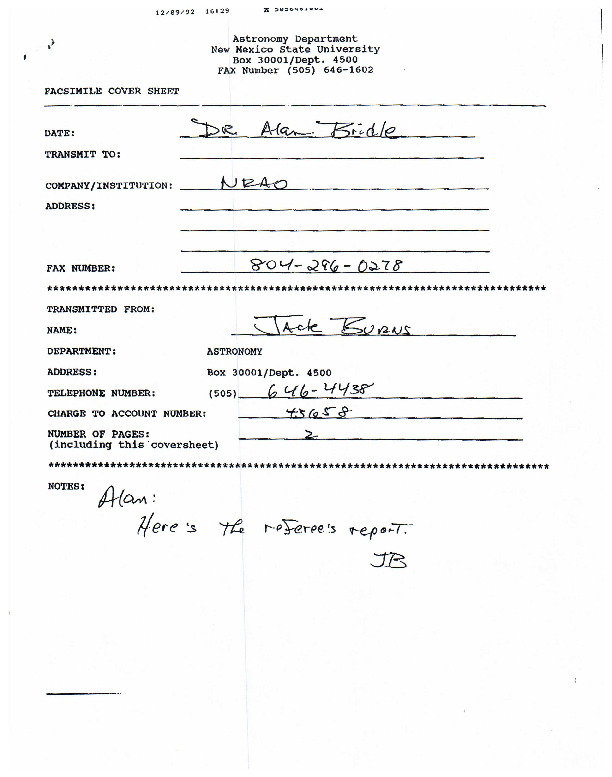 12/09/92 16:29
Astronomy Department
New Mexico State University
Box 30001/Dept. 4500
FAX Number (505) 646-1602
FACSIMILE COVER SHEET
DATE: DR. Alan Bridle
TRANSMIT TO:
COMPANY/INSTITUTION: NRAO
ADDRESS:
FAX NUMBER: 804-296-0278
*******************************************************************************
TRANSMITTED FROM:
NAME: Jack Burns
DEPARTMENT: ASTRONOMY
ADDRESS: Box 30001/Dept. 4500
TELEPHONE NUMBER: (505) 646-4438
CHARGE TO ACCOUNT NUMBER: 43658
NUMBER OF PAGES: 2
(including this coversheet)
*******************************************************************************
NOTES:
Alan:
Here's the referee's report.
JB